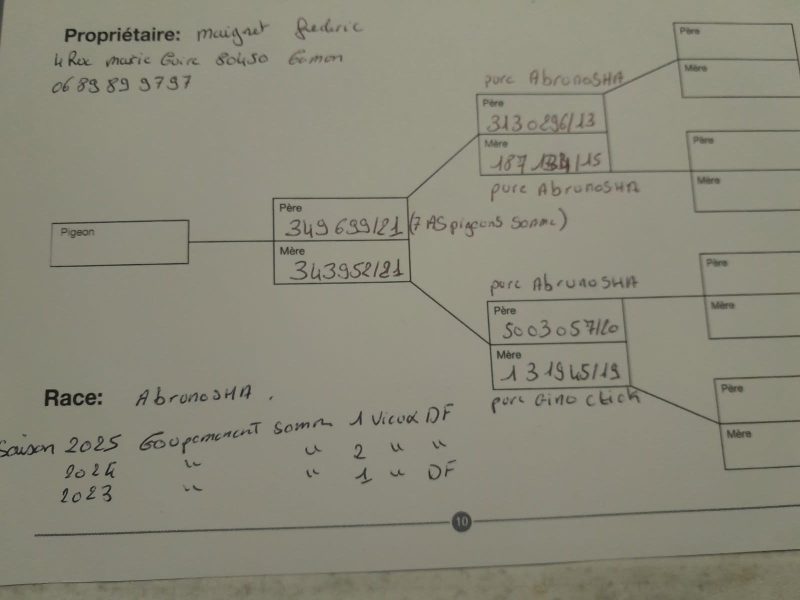 Propriétaire: Maignet frederic
4 Rue Marie Curie 80450 Camon
06 89 89 9797
Père
Mère
pure AbronoSHA
Père
3130296/13
Mère
187 /15
pure AbronoSHA
Père
Mère
Pigeon
Père
349 699/21 (7 AS pigeons Somme)
Mère
343952/21
pure AbrunoSHA
Père
5003057/20
Mère
131945/19
pure Gino Click
Père
Mère
Père
Mère
Race: AbronoSHA.
Saison 2025 Goupement Somme 1 Vieux DF
2024 " " 2 " "
2023 " " 1 " DF
10